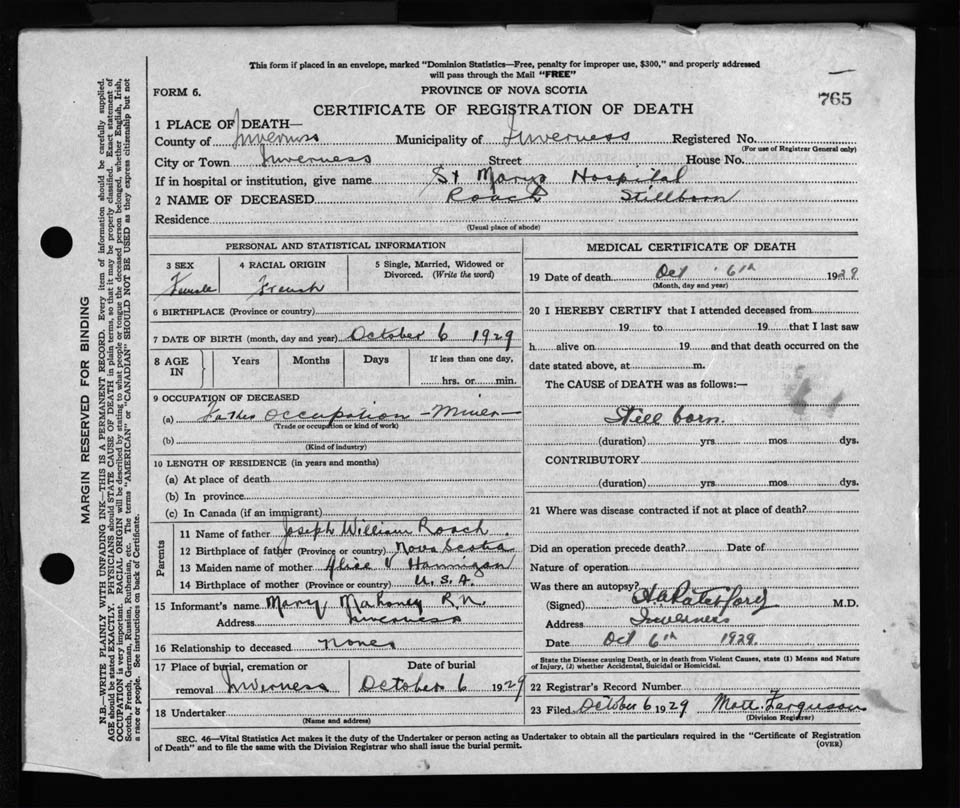 This form if placed in an envelope, marked "Dominion Statistics—Free, penalty for improper use, $300," and properly addressed
will pass through the Mail "FREE"
FORM 6.
PROVINCE OF NOVA SCOTIA
765
CERTIFICATE OF REGISTRATION OF DEATH
1 PLACE OF DEATH—
County of Inverness Municipality of Inverness Registered No.
(For use of Registrar General only)
City or Town Inverness Street House No.
If in hospital or institution, give name St Marys Hospital
2 NAME OF DECEASED Roach Stillborn
Residence
(Usual place of abode)
PERSONAL AND STATISTICAL INFORMATION
3 SEX 4 RACIAL ORIGIN 5 Single, Married, Widowed or
Divorced. (Write the word)
Female French
6 BIRTHPLACE (Province or country)
7 DATE OF BIRTH (month, day and year) October 6 1929
8 AGE IN Years Months Days If less than one day,
hrs. or min.
9 OCCUPATION OF DECEASED
(a) Father Occupation - Miner -
(Trade or occupation or kind of work)
(b)
(Kind of industry)
10 LENGTH OF RESIDENCE (in years and months)
(a) At place of death
(b) In province
(c) In Canada (if an immigrant)
Parents
11 Name of father Joseph William Roach
12 Birthplace of father (Province or country) Nova Scotia
13 Maiden name of mother Alice V Hannigan
14 Birthplace of mother (Province or country) U.S.A.
15 Informant's name Mary Mahoney R.N
Address Inverness
16 Relationship to deceased nones
17 Place of burial, cremation or Date of burial
removal Inverness October 6 1929
18 Undertaker
(Name and address)
MEDICAL CERTIFICATE OF DEATH
19 Date of death Oct 6th 1929
(Month, day and year)
20 I HEREBY CERTIFY that I attended deceased from
19 to 19 that I last saw
h alive on 19 and that death occurred on the
date stated above, at m.
The CAUSE of DEATH was as follows:—
Still born.
(duration) yrs mos dys.
CONTRIBUTORY
(duration) yrs mos dys.
21 Where was disease contracted if not at place of death?
Did an operation precede death? Date of
Nature of operation
Was there an autopsy?
(Signed) M.D.
Address Inverness
Date Oct 6th 1929.
State the Disease causing Death, or in death from Violent Causes, state (1) Means and Nature
of Injury, (2) whether Accidental, Suicidal or Homicidal.
22 Registrar's Record Number
23 Filed October 6 1929 Matt Fergusson
(Division Registrar)
SEC. 46—Vital Statistics Act makes it the duty of the Undertaker or person acting as Undertaker to obtain all the particulars required in the "Certificate of Registration
of Death" and to file the same with the Division Registrar who shall issue the burial permit.
(OVER)
MARGIN RESERVED FOR BINDING
N.B.—WRITE PLAINLY, WITH UNFADING INK—THIS IS A PERMANENT RECORD. Every item of information should be carefully supplied.
AGE should be stated EXACTLY. PHYSICIANS should STATE CAUSE OF DEATH in plain terms, so that it may be properly classified. Exact statement of
OCCUPATION is very important. RACIAL ORIGIN will be described by stating to what people or tongue the deceased person belonged, whether English, Irish,
Scotch, French, German, Russian, Ruthenian, etc. The terms "AMERICAN" or "CANADIAN" SHOULD NOT BE USED as they express citizenship but not
a race or people. See instructions on back of Certificate.